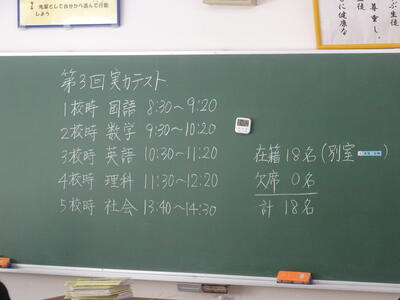 先輩として自分から進んで行動
しよう
第3回実力テスト
1校時 国語 8:30〜9:20
2校時 数学 9:30〜10:20
3校時 英語 10:30〜11:20
4校時 理科 11:30〜12:20
5校時 社会 13:40〜14:30
在籍 18名(別室 )
欠席 0名
計 18名